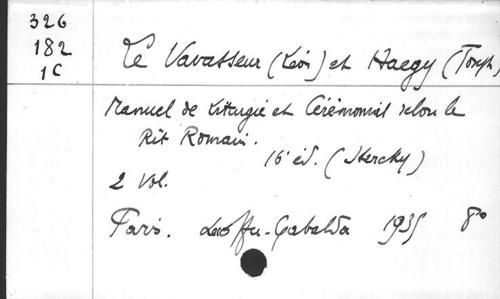 326
182
1C
Le Vavasseur (Léon) et Haegy (Joseph)
Manuel de Liturgie et Cérémonial selon le
Rit Romain.
16e éd. (Stercky)
2 vol.
Paris. Lecoffre-Gabalda 1935 8°